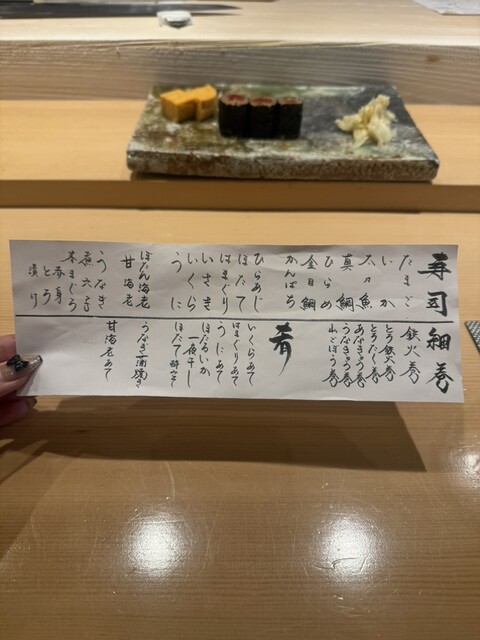 寿司
たまご
いか
太刀魚
真鯛
ひらめ
金目鯛
かんぱち
ひらあじ
ほたて
はまぐり
いさき
いくら
うに
ぼたん海老
甘海老
うなぎ
煮穴子
本まぐろ
赤身
とろ
漬け
細巻
鉄火巻
とろ鉄火巻
とろたく巻
あなきゅう巻
うなきゅう巻
山ごぼう巻
肴
いくらあて
はまぐりあて
うにあて
ほたるいか
一夜干し
ほたて
うなぎ蒲焼き
甘海老あて